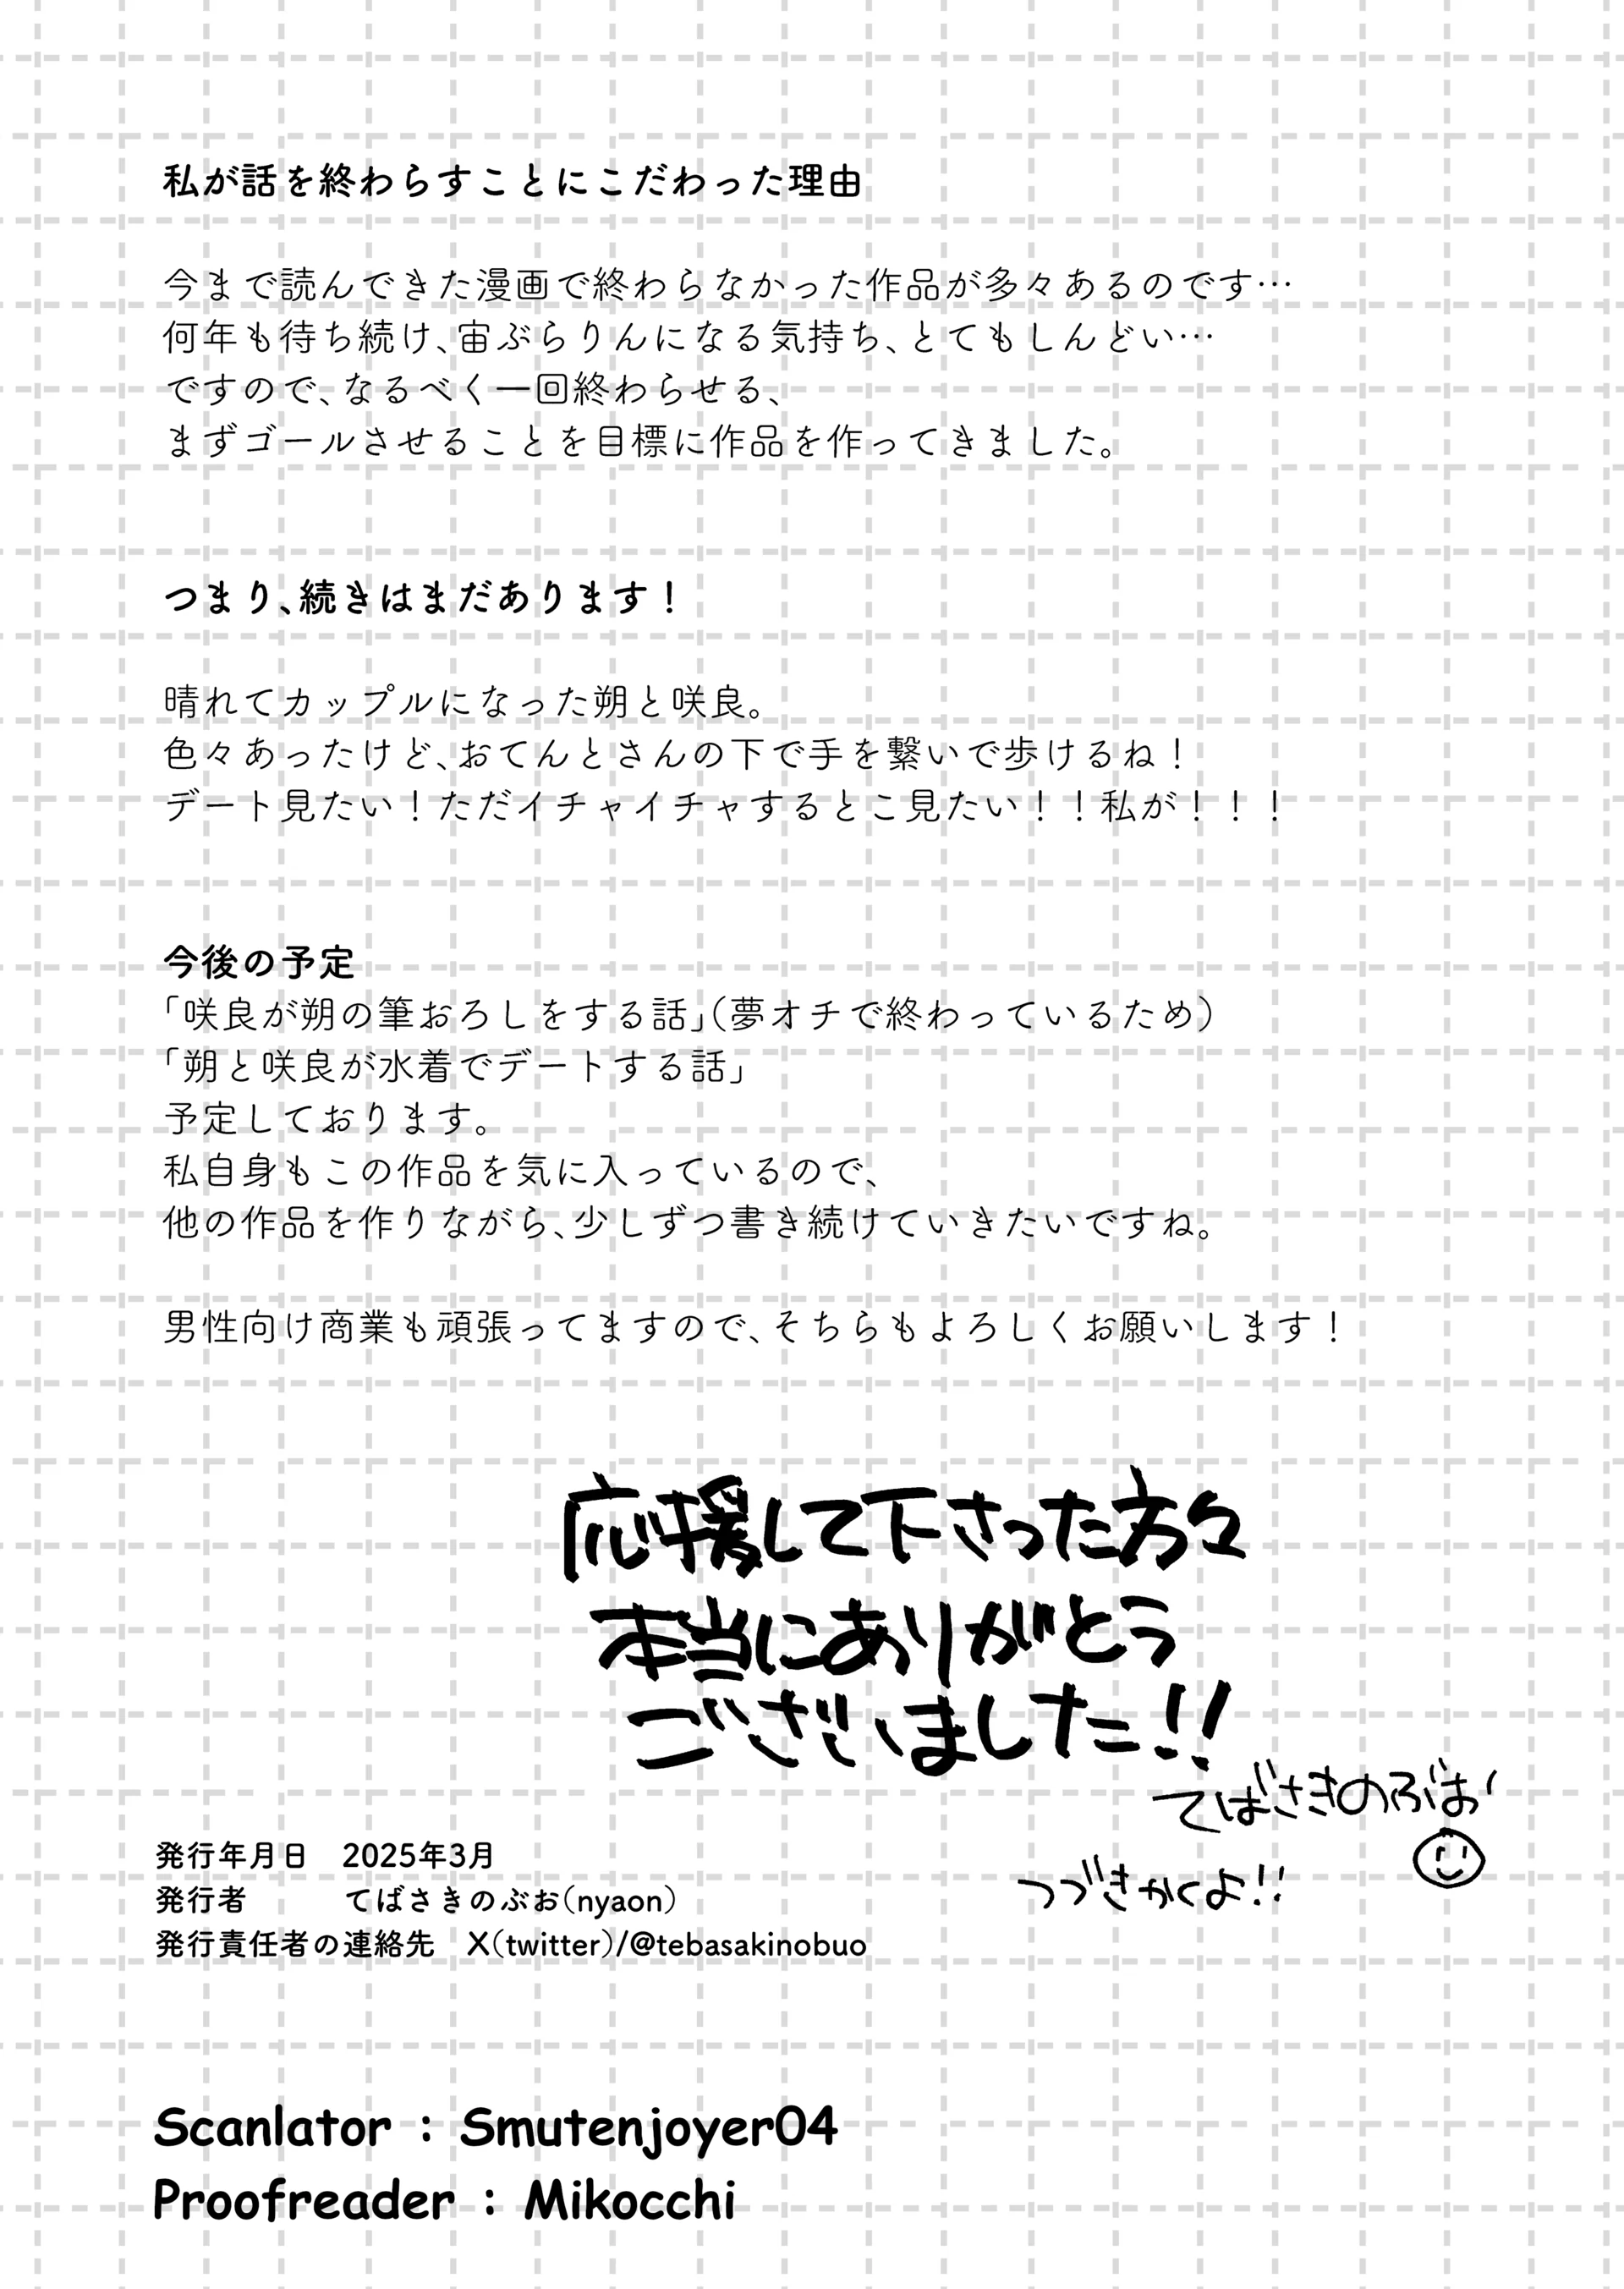 私が話を終わらすことにこだわった理由
今まで読んできた漫画で終わらなかった作品が多々あるのです…
何年も待ち続け、宙ぶらりんになる気持ち、とてもしんどい…
ですので、なるべく一回終わらせる、
まずゴールさせることを目標に作品を作ってきました。
つまり、続きはまだあります！
晴れてカップルになった朔と咲良。
色々あったけど、おてんとさんの下で手を繋いで歩けるね！
デート見たい！ただイチャイチャするとこ見たい！！私が！！！
今後の予定
「咲良が朔の筆おろしをする話」（夢オチで終わっているため）
「朔と咲良が水着でデートする話」
予定しております。
私自身もこの作品を気に入っているので、
他の作品を作りながら、少しずつ書き続けていきたいですね。
男性向け商業も頑張ってますので、そちらもよろしくお願いします！
応援して下さった方々
本当にありがとう
ございました!!
てばさきのぶお
つづきかくよ!!
発行年月日　2025年3月
発行者　てばさきのぶお（nyaon）
発行責任者の連絡先　X（twitter）/@tebasakinobuo
Scanlator : Smutenjoyer04
Proofreader : Mikocchi